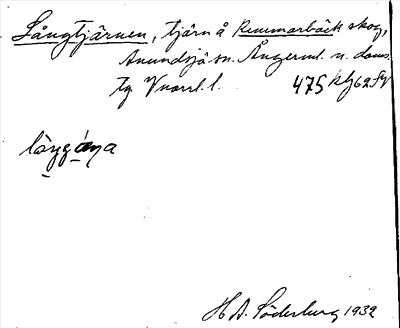 Långtjärnen, tjärn å Remmarbäck skog,
Anundsjö sn. Ångerml. n. doms.
tg Vnorrl. l. 475 kfj 62
H. A. Söderberg 1932